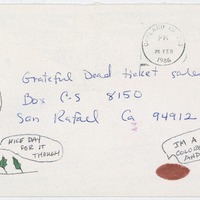 PM
21 FEB
1986
Grateful Dead ticket sale
Box C-S 8150
San Rafael Ca 94912
NICE DAY
FOR IT
THOUGH
IM A
COLOR
AND